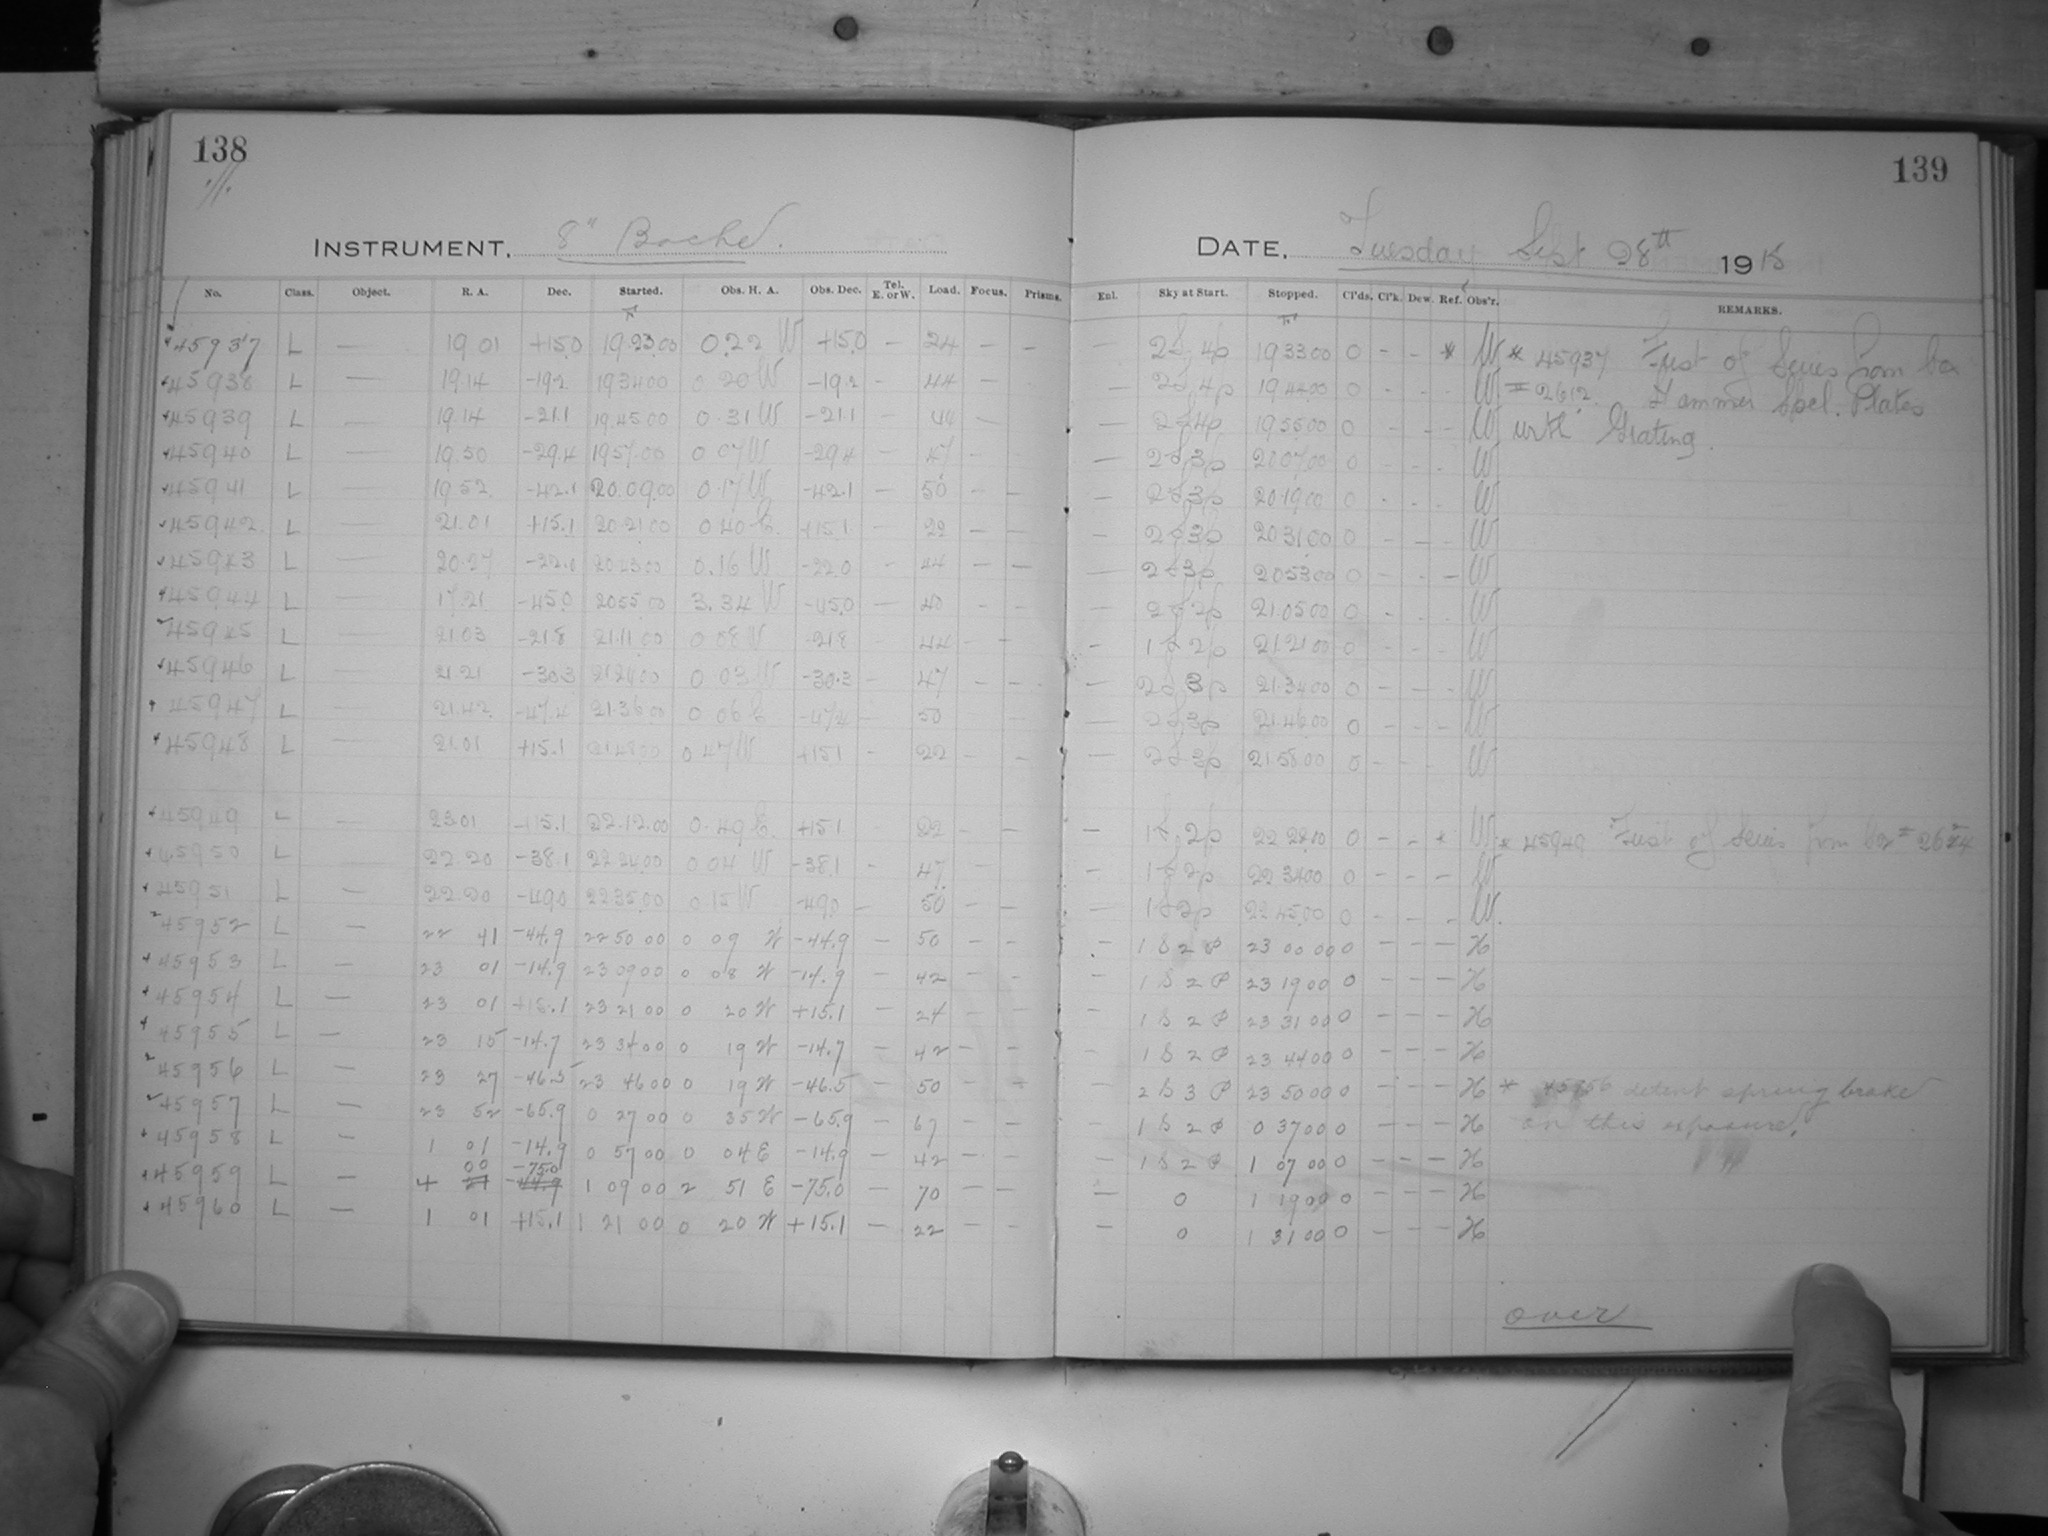 138
139
INSTRUMENT. 8" Bache.
DATE. Tuesday Sept 28th 1915
No. Class. Object. R. A. Dec. Started. Obs. H. A. Obs. Dec. Tel. E. or W. Load. Focus. Prisms. Enl. Sky at Start. Stopped. Cl'ds. Cl'k. Dew. Ref. Obs'r. REMARKS.
45937 L — 19 01 +15.0 19.23.00 0.22 W +15.0 — 24 — — — 2S 4p 19 33 00 0 - - * W * 45937 First of Series from box
45938 L — 19.14 -19.2 19 34 00 0 20 W -19.2 - 44 — — 2S 4p 19 44 00 0 - - - W # 2612. Hammer Spel. Plates
45939 L — 19.14 -21.1 19.45 00 0.31 W -21.1 - 44 — — 2S 4p 19 55 00 0 - - - W with Grating.
45940 L — 19.50 -29.4 19 57.00 0 07 W -29.4 - 47 - — 2S 3p 20 07 00 0 - - - W
45941 L — 19 52 -42.1 20.09.00 0.17 W -42.1 — 50 - - — 2S 3p 20 19 00 0 - - - W
45942 L — 21.01 +15.1 20.21 00 0 40 E +15.1 - 22 - — - 2S 3p 20 31 00 0 - - - W
45943 L — 20.27 -22.0 20 43 00 0.16 W -22.0 - 44 - — — 2S 3p 20 53 00 0 - - - W
45944 L — 17.21 -45.0 20 55 00 3.34 W -45.0 — 40 - - — 2S 2p 21 05 00 0 - - W
45945 L — 21.03 -21.8 21.11 00 0 08 W -21.8 44 - - - 1S 2p 21 21 00 0 - - - W
45946 L — 21.21 -30.3 21 24 00 0 03 W -30.3 - 47 - - — 2S 3p 21.34 00 0 - - - W
45947 L — 21.42 -47.4 21.36 00 0 06 E -47.4 - 50 — 2S 3p 21.46 00 0 - - - W
45948 L — 21.01 +15.1 21 48 00 0 47 W +15.1 - 22 - - — 2S 3p 21 58 00 0 - - - W
45949 L 23.01 +15.1 22.12.00 0.49 E +15.1 22 - - — 1S 2p 22 22 00 0 - - * W * 45949 First of Series from box # 2624
45950 L 22.20 -38.1 22 24 00 0 04 W -38.1 47 - 1S 2p 22 34 00 0 - - - W
45951 L — 22.20 -49.0 22 35.00 0 15 W -49.0 — 50 - - — 1S 2p 22 45.00 0 - - - W.
45952 L — 22 41 -44.9 22 50 00 0 09 W -44.9 — 50 - - - 1 S 2 P 23 00 00 0 - - - H
45953 L — 23 01 -14.9 23 09 00 0 08 W -14.9 - 42 - - - 1 S 2 P 23 19 00 0 - - - H
45954 L — 23 01 +15.1 23 21 00 0 20 W +15.1 — 24 - - — 1 S 2 P 23 31 00 0 - - - H
45955 L — 23 15 -14.7 23 34 00 0 19 W -14.7 - 42 - - - 1 S 2 P 23 44 00 0 - - - H
45956 L — 23 27 -46.5 23 46 00 0 19 W -46.5 — 50 - * - 2 S 3 P 23 50 00 0 - - - H * 45956 detent spring broke
45957 L — 23 52 -65.9 0 27 00 0 35 W -65.9 - 67 - - - 1 S 2 P 0 37 00 0 - - - H on this exposure.
45958 L - 1 01 -14.9 0 57 00 0 04 E -14.9 - 42 - - — 1 S 2 P 1 07 00 0 - - - H
45959 L — 4 00 -75.0 1 09 00 2 51 E -75.0 - 70 — — — 0 1 19 00 0 - - - H
45960 L — 1 01 +15.1 1 21 00 0 20 W +15.1 — 22 - - - 0 1 31 00 0 - - - H
over